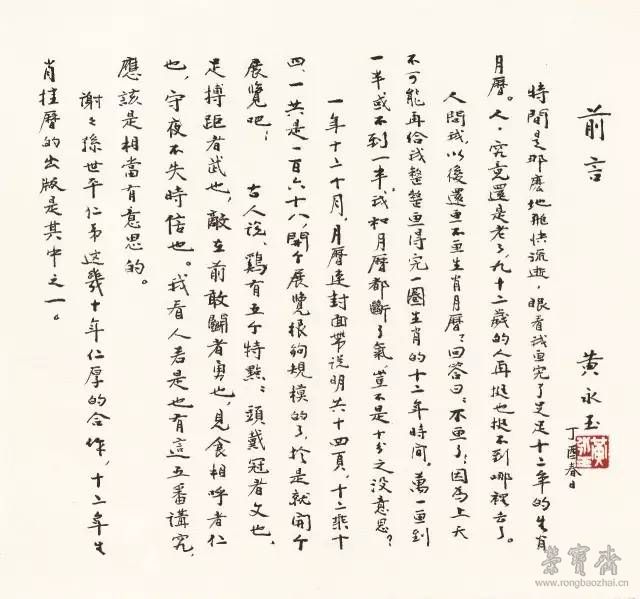 前言
黄永玉
丁酉春日
時間是那麽地飛快流逝，眼看我画完了足足十二年的生肖
月曆。人，究竟還是老了，九十二歲的人再挺也挺不到哪裡去了。
人問我，以後還画不画生肖月曆？回答曰：不画了；因為上天
不可能再给我整整画得完一圈生肖的十二年時间。萬一画到
一半或不到一半，我和月曆都斷了氣，豈不是十分之没意思？
一年十二个月，月曆連封面帶说明共十四頁，十二乘十
四，一共是一百六十八，開个展覽很夠規模的了，於是就開个
展覽吧！
古人说，鷄有五个特點：頭戴冠者文也，
足搏距者武也，敵在前敢鬭者勇也，見食相呼者仁
也，守夜不失時信也。我看人若是也有這五番講究，
應該是相當有意思的。
謝謝孫世平仁弟这幾十年仁厚的合作，十二年生
肖挂曆的出版是其中之一。
榮寶齋
www.rongbaozhai.cn